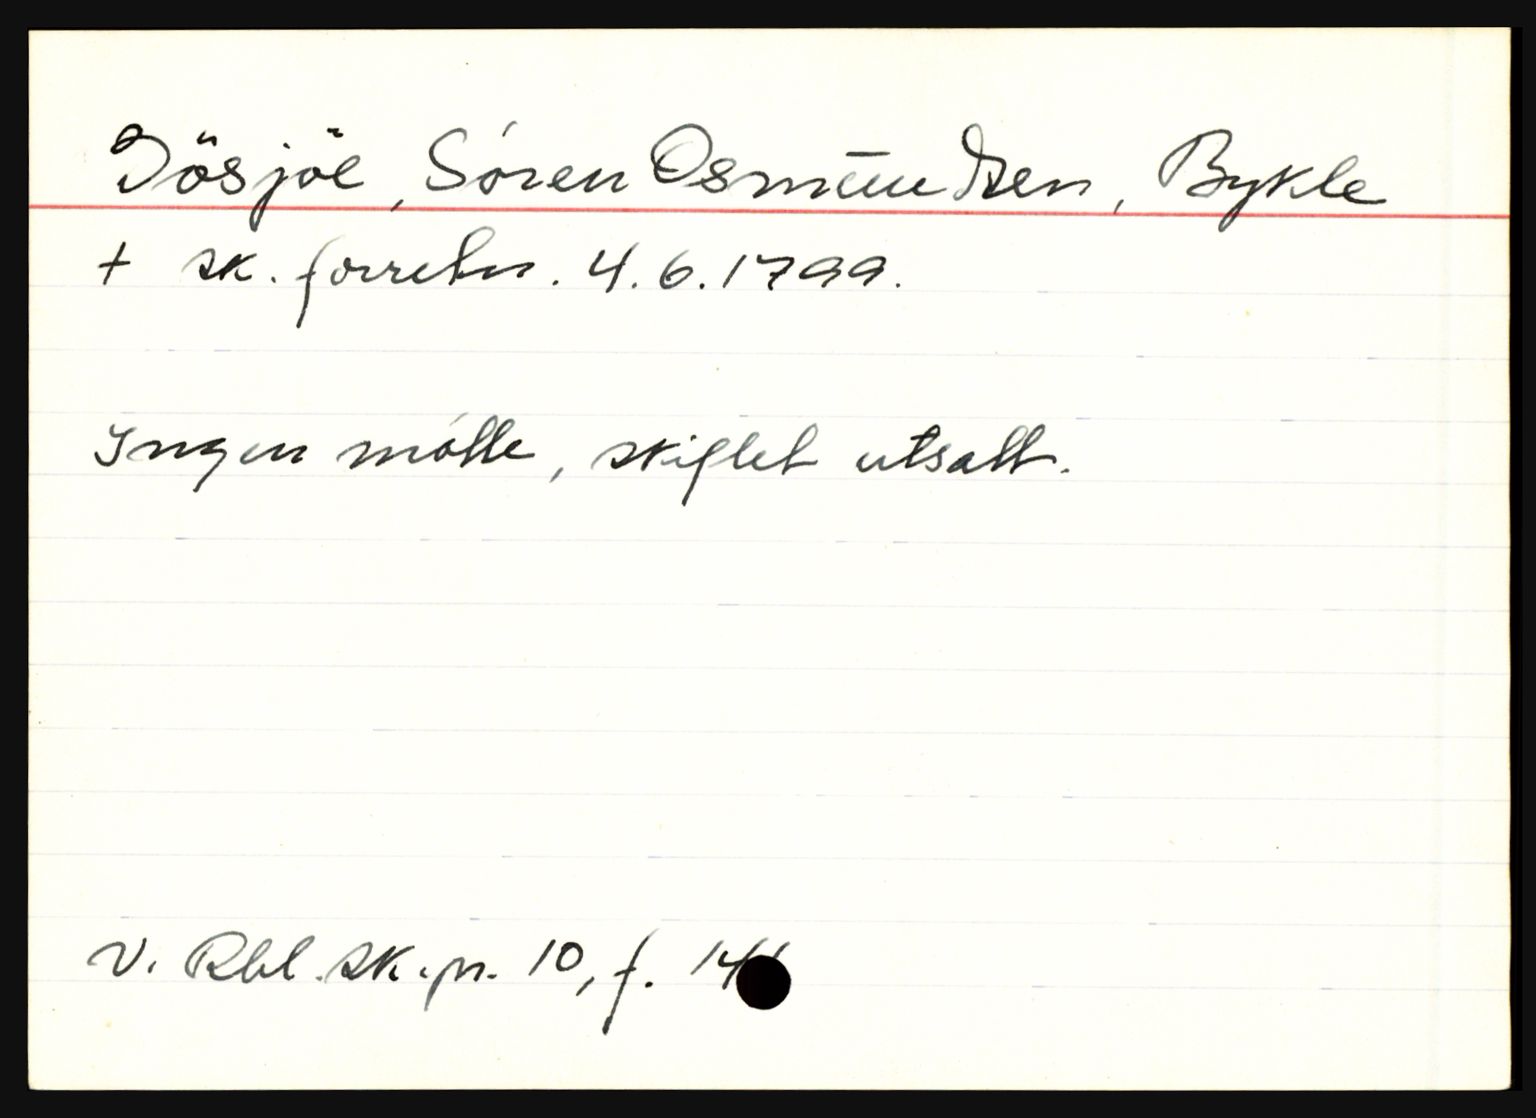 Jösjöe, Sóren Osmūndsen, Bykle
+ sk. forretn. 4.6.1799.
Ingen mótte, skiftet utsatt.
V. Rbl. sk.pr. 10, f.